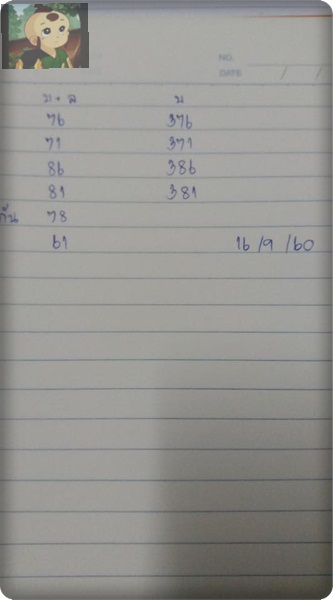 NO.
DATE / /
บ + ล บ
76 376
71 371
86 386
81 381
กัน 78
61 16/9/60